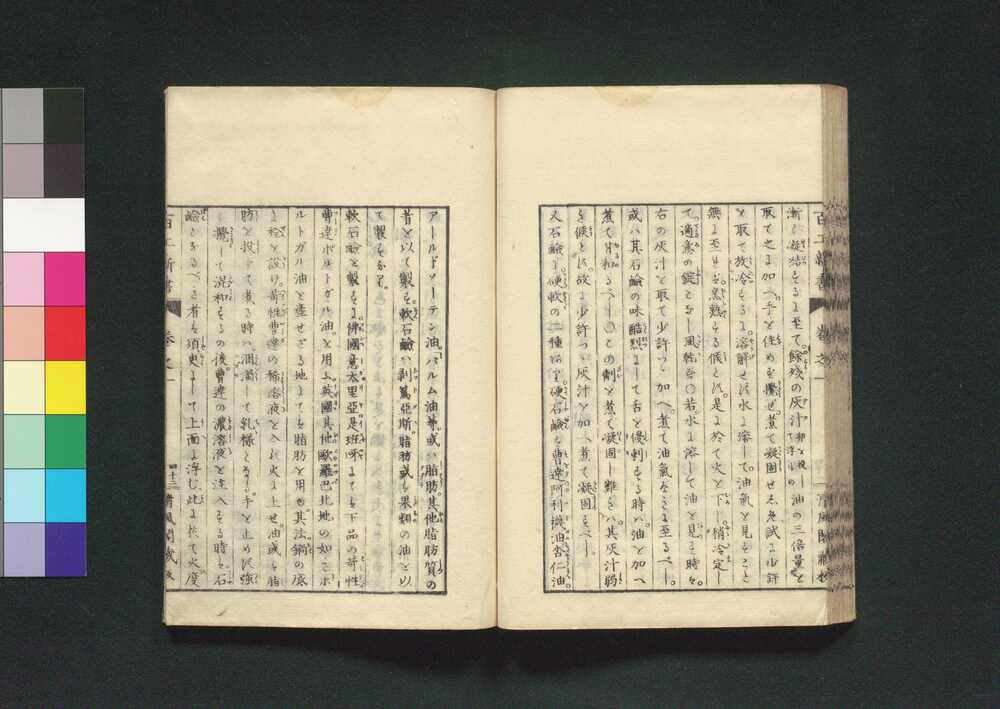 漸ク凝沽スルニ至テ。餘殘ノ灰汁 油ノ三倍量ヲ
取テ之ニ加ヘ。手ヲ住メズ攪ゼ。煮テ凝固セシム。試ニ少許
ヲ取テ放冷スルニ。溶解セズ。水ニ溶シテ。油氣ヲ見ルコト
無ニ至ルヲ。煮熟スル候トス。是ニ於テ火ヲ下シ。稍冷定シ
テ。適意ノ錠トナシ。風乾ス。〇若。水ニ溶シテ油ヲ見ル時ハ。
右ノ灰汁ヲ取テ少許ヅヽ加ヘ。煮テ油氣ナキニ至ルベシ。
或ハ其石鹼ノ味酷烈ニシテ舌ヲ侵刺スル時ハ。油ヲ加ヘ
煮テ甘和スベシ。〇この劑ヲ煮テ凝固シ難キハ。其灰汁弱
キ候トス。故ニ少許ヅヽ灰汁ヲ加ヘ。煮テ凝固スベシ。
又石鹼ニ硬軟ノ二種アリ。硬石鹼ハ曹達阿利襪油杏仁油
百工新書 卷之一
アールドノーテン油。パルム油等。或ハ脂肪。其他脂肪質ノ
者ヲ以テ製ス。軟石鹼ハ剥篤亞斯。脂肪或ハ果類ノ油ヲ以
テ製スルナリ。
軟石鹼ヲ製スルニ佛國意太里亞是班呀ニテハ下品ノ苛性
曹達ポルトガル油。ヲ用ユ。英國其他歐羅巴北地ノ如キポ
ルトガル油ヲ産セザル地ニテハ脂肪ヲ用ユ。其法鍋ノ底
ニ栓ヲ設ケ苛性曹達ノ稀溶液ヲ入レ火ニ上セ油或ハ脂
肪ヲ投ジテ煮ル時ハ溷濁シテ乳樣トナル。手ヲ止メズ強
ク攪シテ混和スルノ後。曹達ノ濃溶液ヲ注入スル時ハ石
鹼トナルベキ者ハ須臾ニシテ上面ニ浮ム此ニ於テ火度
百工新書 卷之一 四十三